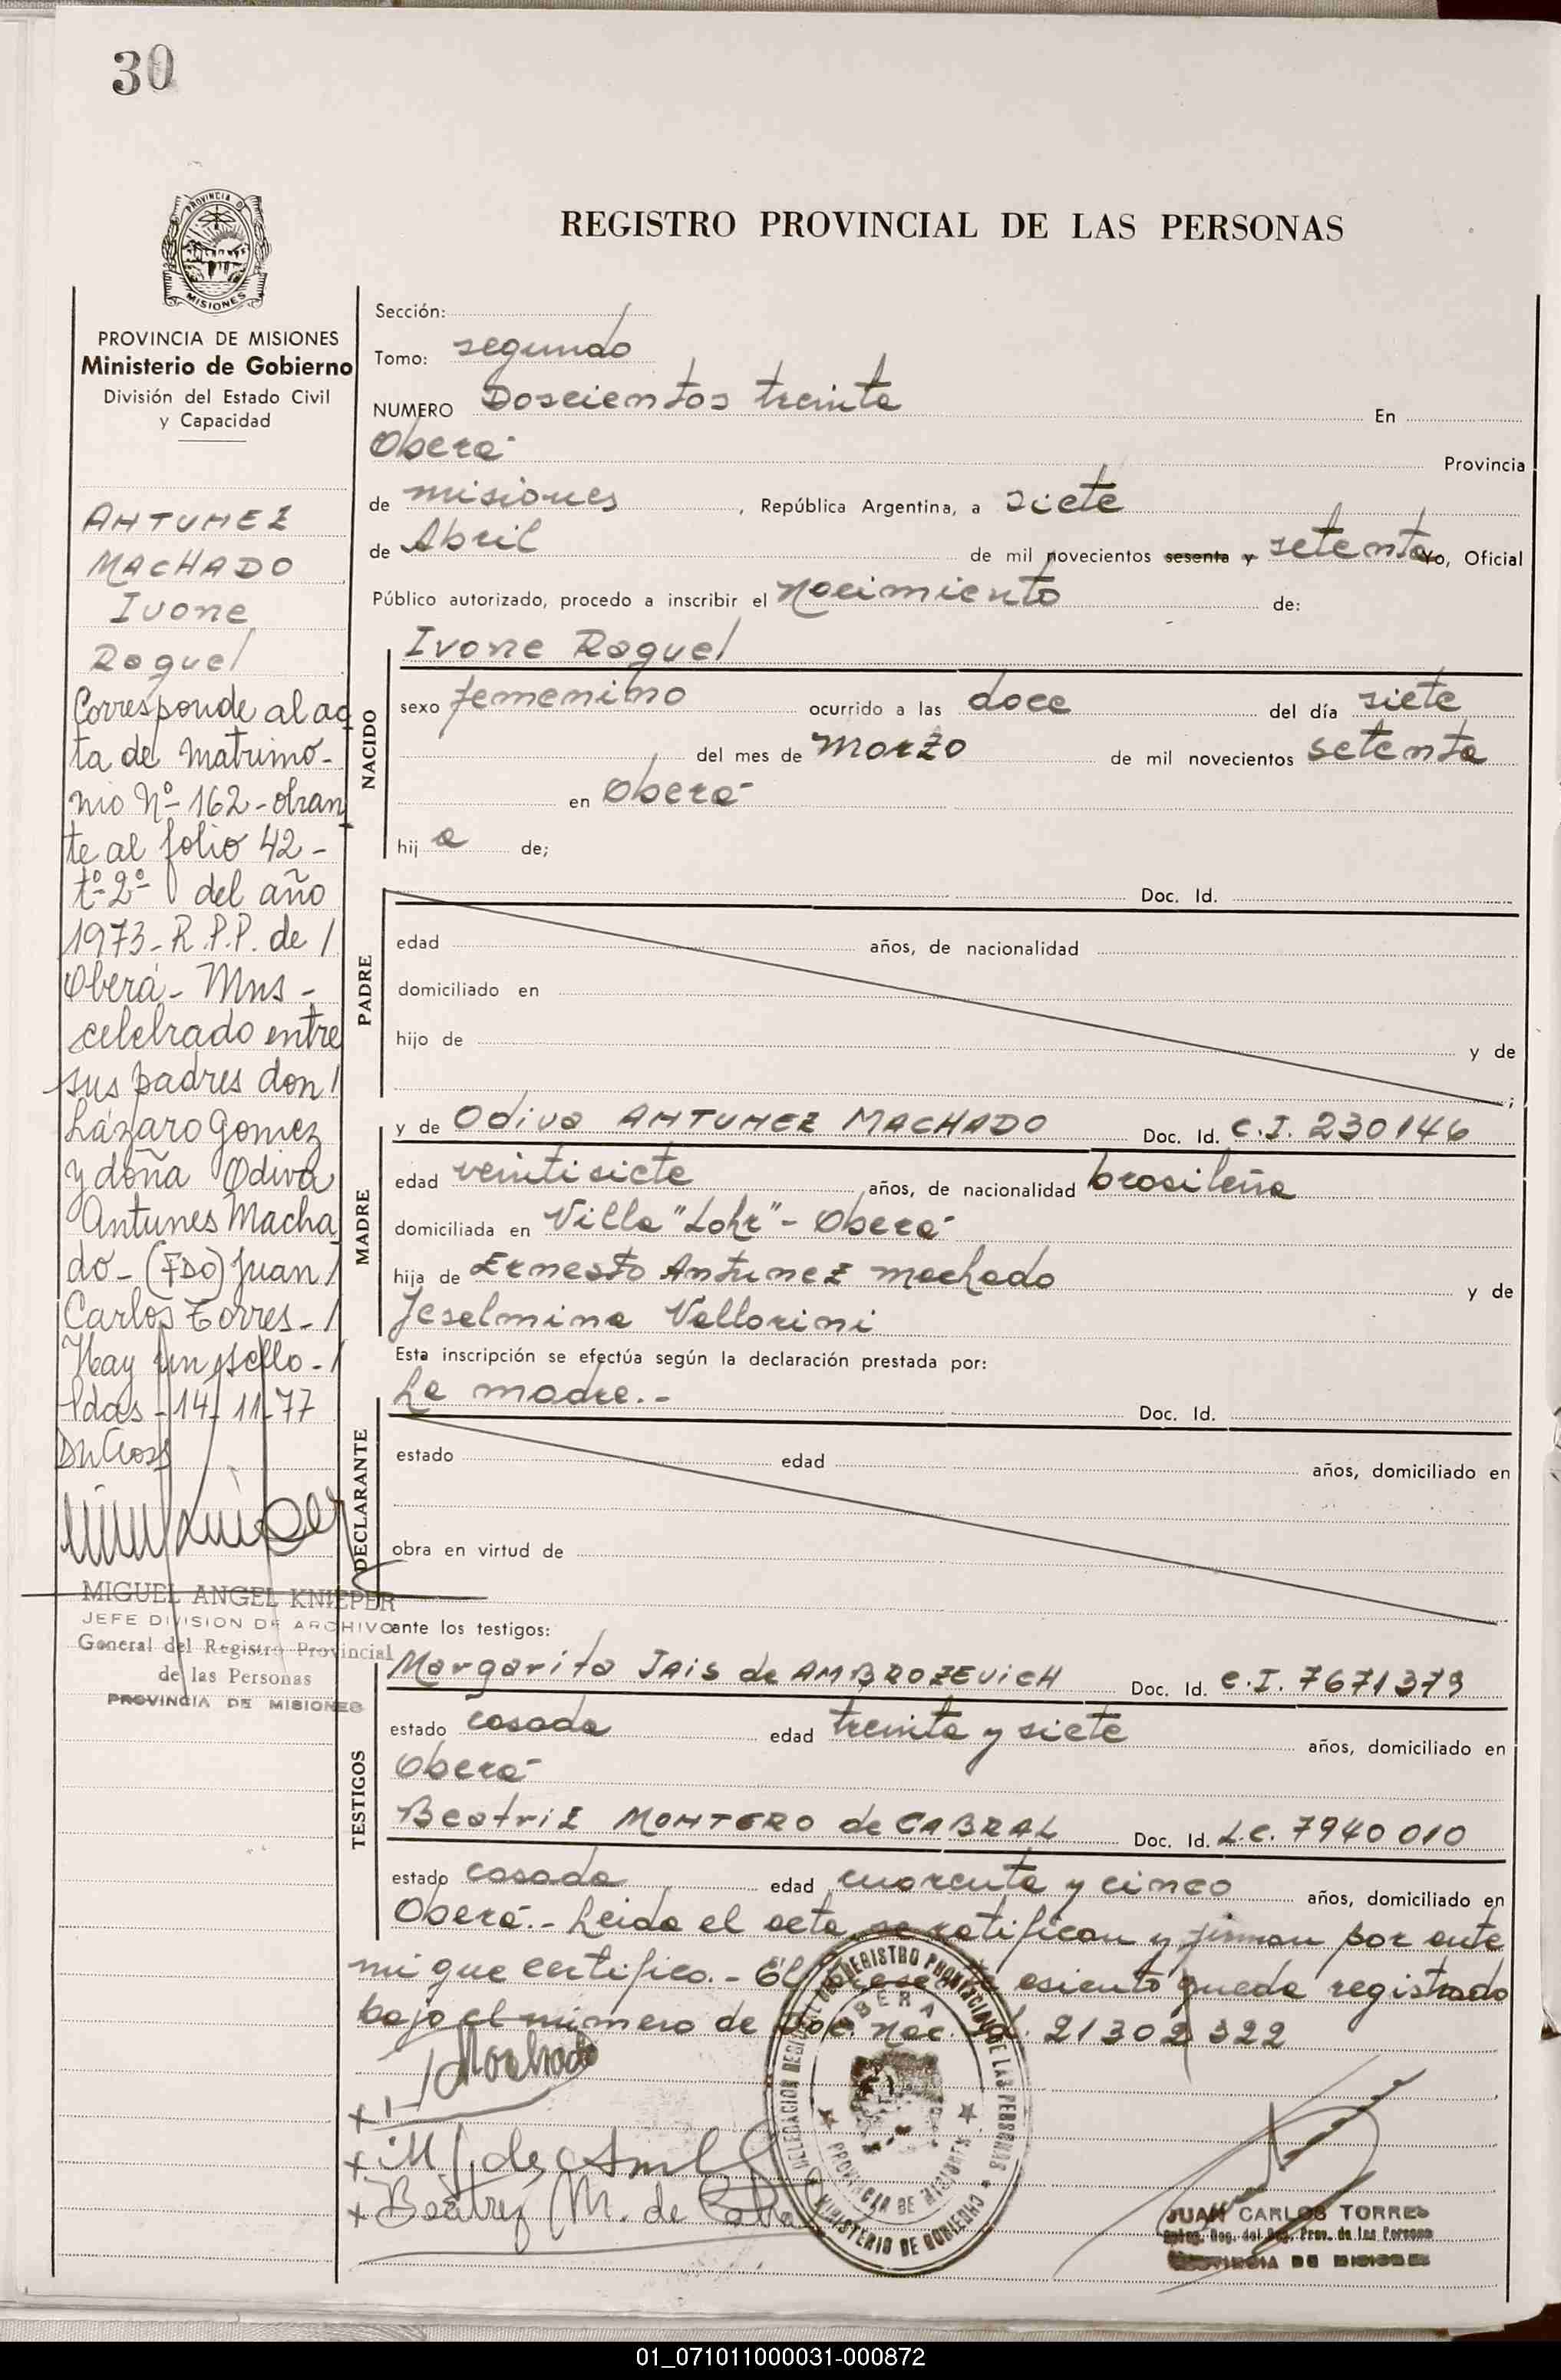 30
PROVINCIA DE
MISIONES
REGISTRO PROVINCIAL DE LAS PERSONAS
PROVINCIA DE MISIONES
Ministerio de Gobierno
División del Estado Civil
y Capacidad
ANTUNEZ
MACHADO
Ivone
Raquel
Corresponde al ac
ta de Matrimo-
nio Nº 162 - obran
te al folio 42 -
tº 2º del año
1973 - R.P.P. de /
Oberá - Mns -
celebrado entre
sus padres don /
Lázaro Gomez
y doña Odiva
Antunes Macha
do - (FDO) Juan /
Carlos Torres - /
Hay un sello - /
Pdas - 14-11-77
MIGUEL ANGEL KNIEPER
JEFE DIVISION DE ARCHIVO
General del Registro Provincial
de las Personas
PROVINCIA DE MISIONES
Sección:
Tomo: segundo
NUMERO Doscientos treinta En
Oberá Provincia
de misiones, República Argentina, a siete
de Abril de mil novecientos sesenta y setenta Yo, Oficial
Público autorizado, procedo a inscribir el Nacimiento de:
NACIDO
Ivone Raquel
sexo femenino ocurrido a las doce del día siete
del mes de Marzo de mil novecientos setenta
en Oberá
hij a de;
PADRE
Doc. Id.
edad años, de nacionalidad
domiciliado en
hijo de y de
;
MADRE
y de Odiva ANTUNEZ MACHADO Doc. Id. C.I. 230146
edad veintisiete años, de nacionalidad brasileña
domiciliada en Villa "Lohr" - Oberá
hija de Ernesto Antunez Machado y de
Jeselmina Vallorini
Esta inscripción se efectúa según la declaración prestada por:
DECLARANTE
La madre.-
Doc. Id.
estado edad años, domiciliado en
obra en virtud de
ante los testigos:
TESTIGOS
Margarita JAIS de AMBROZEVICH Doc. Id. C.I. 7671379
estado casada edad treinta y siete años, domiciliado en
Oberá
Beatriz MONTERO de CABRAL Doc. Id. L.C. 7940010
estado casada edad cuarenta y cinco años, domiciliado en
Oberá.- Leida el acta, se ratifican y firman por ante
mi que certifico.- El presente asiento queda registrado
bajo el número de Doc. Nac. 21302322
Machado
Beatriz M. de
OBERA
PROVINCIA DE MISIONES
MINISTERIO DE GOBIERNO
JUAN CARLOS TORRES
PROVINCIA DE MISIONES
01_071011000031-000872